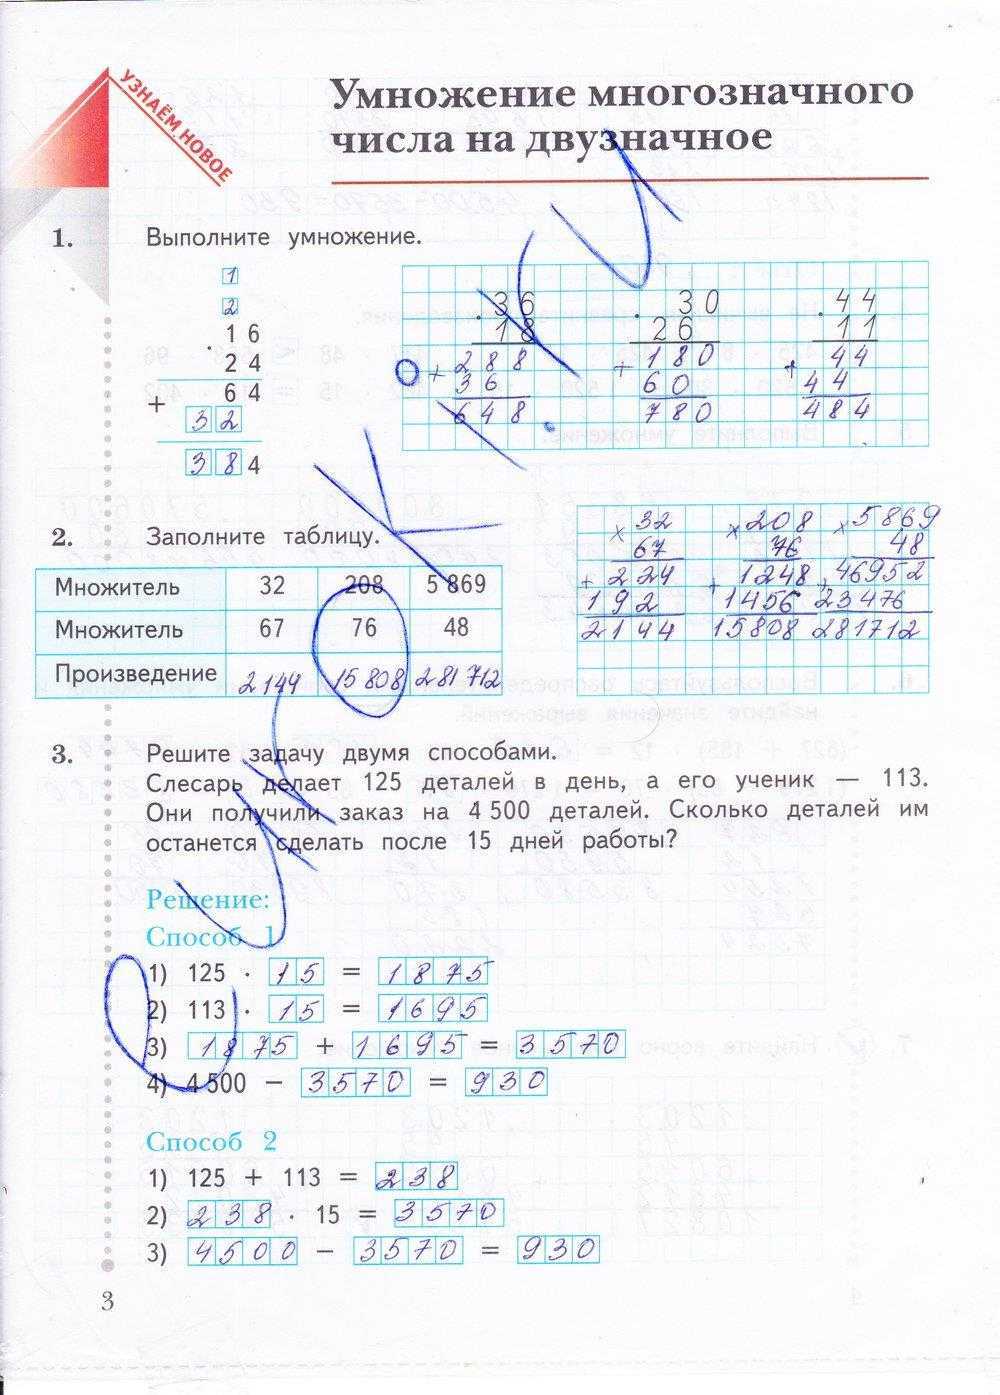 УЗНАЁМ НОВОЕ
Умножение многозначного
числа на двузначное
1. Выполните умножение.
1
2
· 16
24
+ 64
32
384
· 36
18
+ 288
36
648
· 30
26
+ 180
60
780
· 44
11
+ 44
44
484
2. Заполните таблицу.
Множитель 32 208 5 869
Множитель 67 76 48
Произведение 2144 15808 281712
× 32
67
+ 224
192
2144
× 208
76
+ 1248
1456
15808
× 5869
48
+ 46952
23476
281712
3. Решите задачу двумя способами.
Слесарь делает 125 деталей в день, а его ученик — 113.
Они получили заказ на 4 500 деталей. Сколько деталей им
останется сделать после 15 дней работы?
Решение:
Способ 1
1) 125 · 15 = 1875
2) 113 · 15 = 1695
3) 1875 + 1695 = 3570
4) 4 500 − 3570 = 930
Способ 2
1) 125 + 113 = 238
2) 238 · 15 = 3570
3) 4500 − 3570 = 930
3